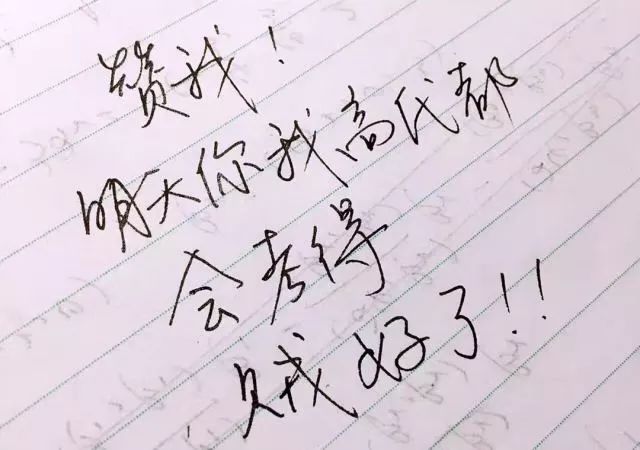 赞我！
明天你我高代都
会考得
贼好了!!